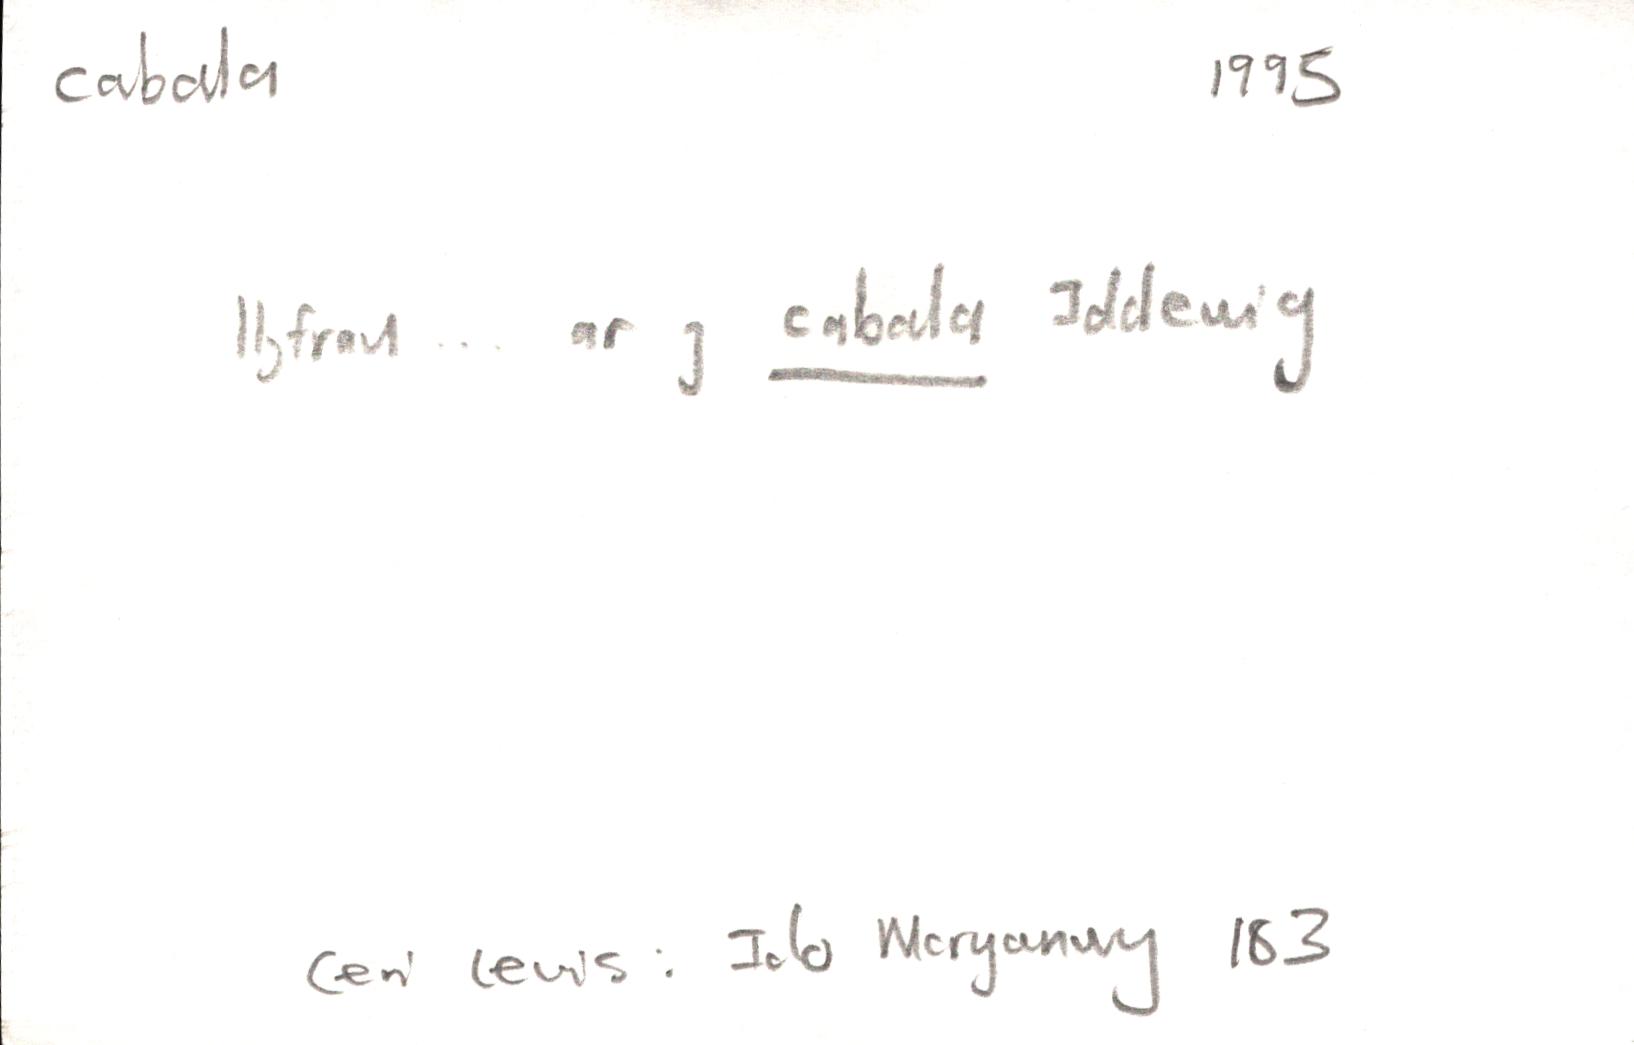 cabala 1995
llyfrau ... ar y cabala Iddewig
Ceri Lewis: Iolo Morganwg 183